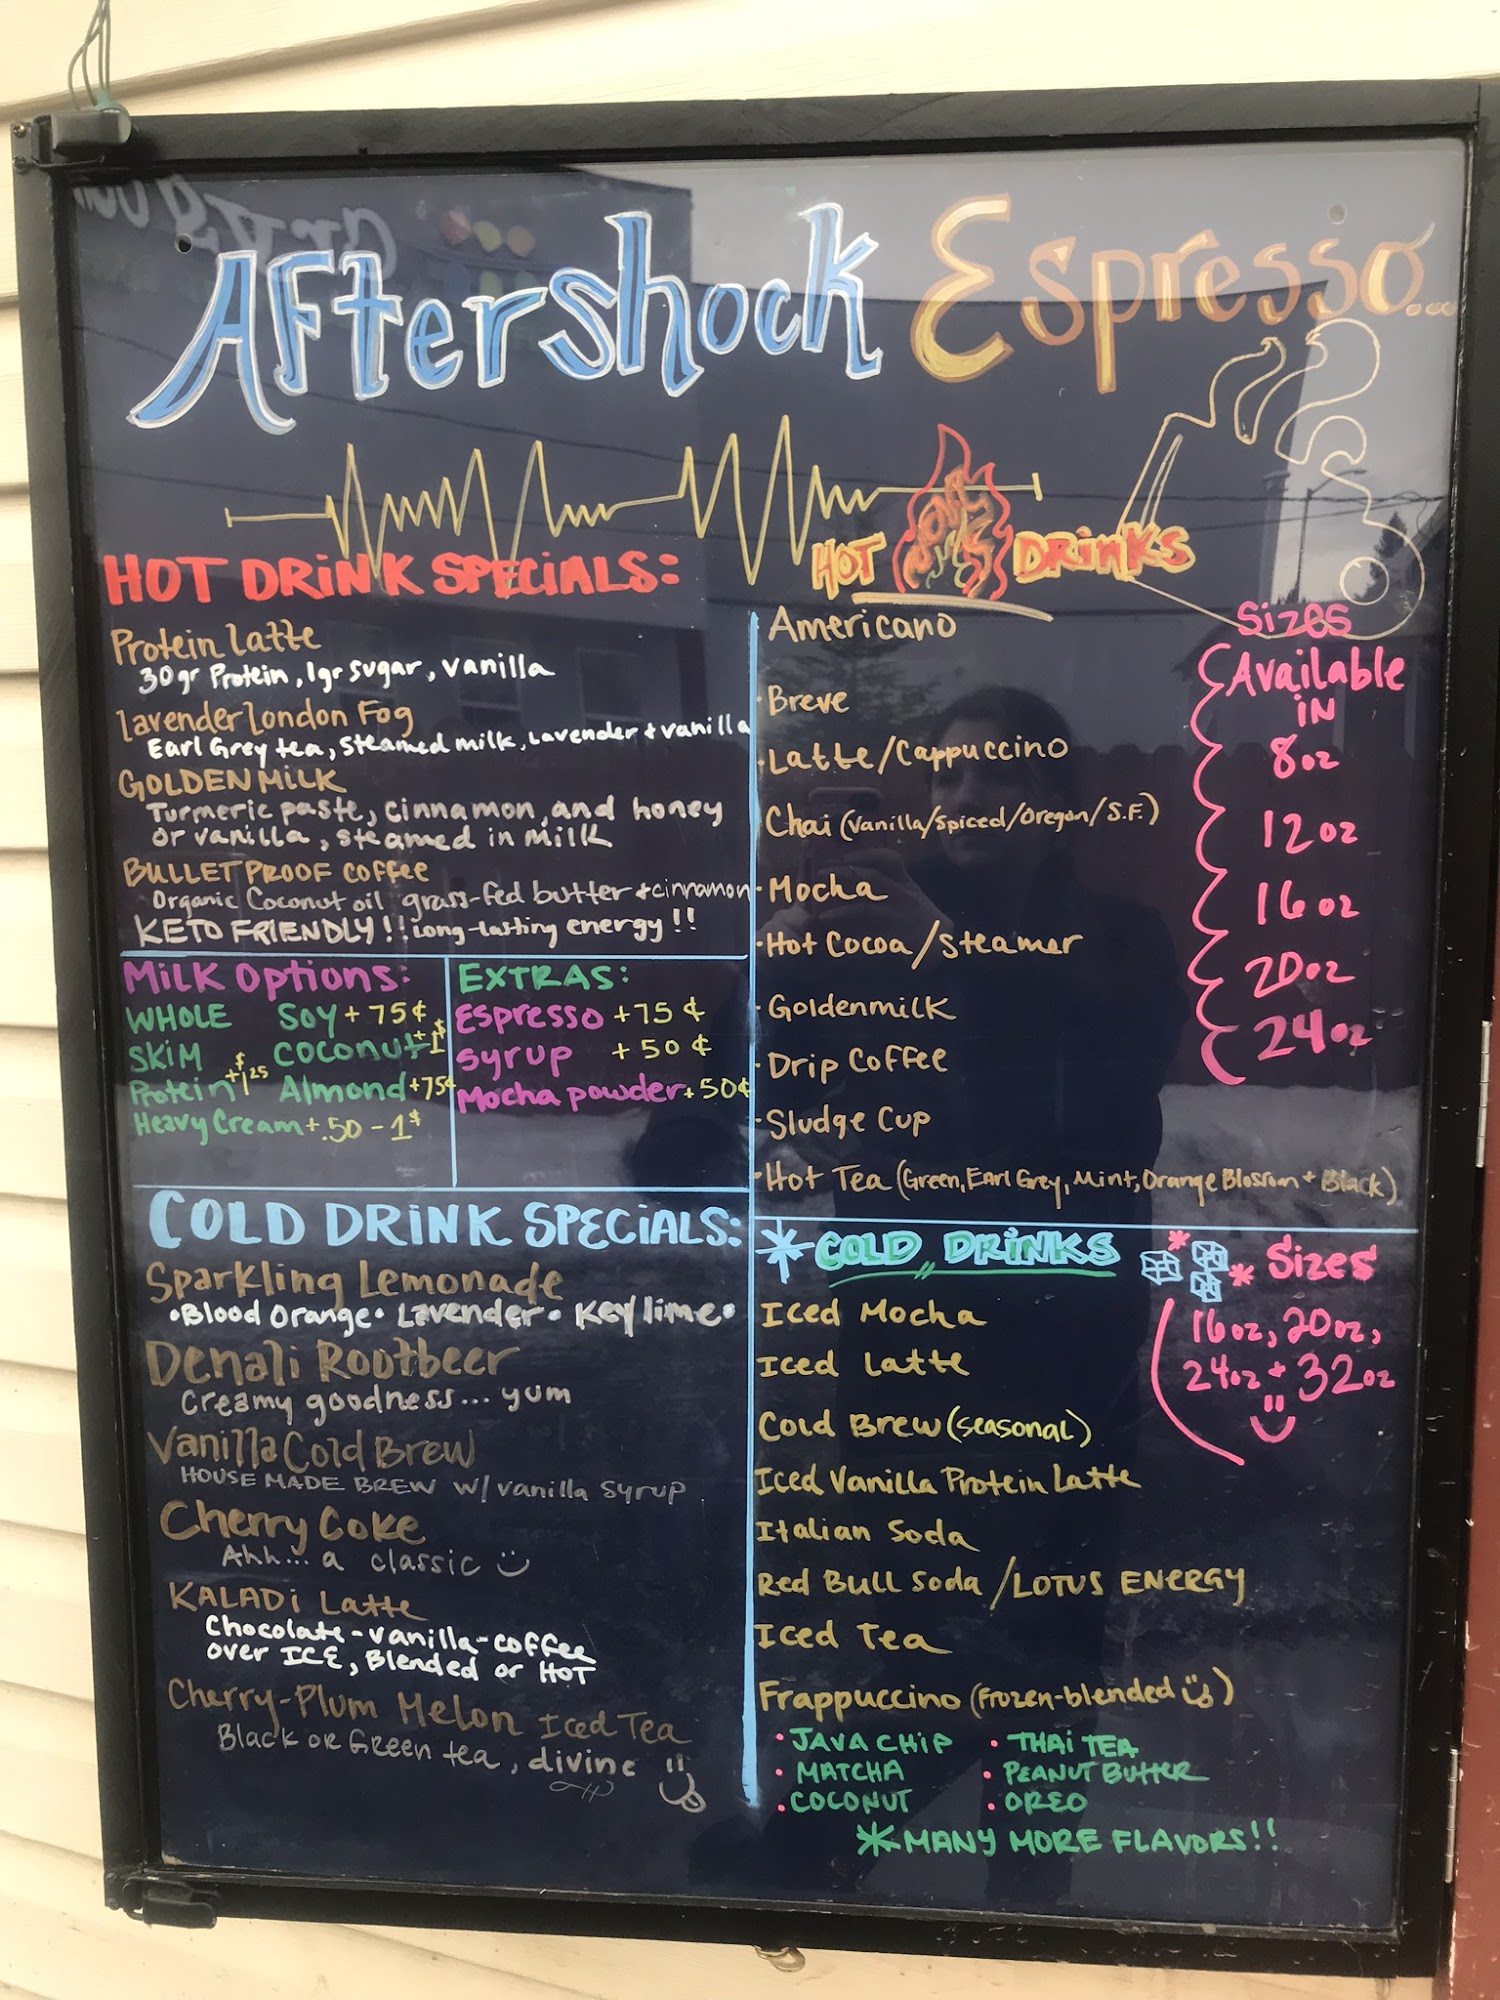 Aftershock Espresso....
HOT DRINK SPECIALS:
Protein Latte
30gr Protein, 1gr sugar, vanilla
Lavender London Fog
Earl Grey tea, steamed milk, Lavender + vanilla
GOLDEN MILK
Turmeric paste, cinnamon, and honey
or vanilla, steamed in milk
BULLETPROOF COFFEE
Organic Coconut oil grass-fed butter + cinnamon
KETO FRIENDLY!! Long-lasting energy!!
Milk Options:
WHOLE Soy + 75¢
SKIM Coconut +1$
Protein +$1.25 Almond +75¢
Heavy Cream +.50 - 1$
EXTRAS:
Espresso +75¢
Syrup +50¢
Mocha powder +50¢
COLD DRINK SPECIALS:
Sparkling Lemonade
•Blood Orange• Lavender• Key lime•
Denali Rootbeer
Creamy goodness... yum
Vanilla Cold Brew
HOUSE MADE BREW w/ vanilla syrup
Cherry Coke
Ahh... a classic
KALADI Latte
Chocolate-vanilla-coffee
over ICE, Blended or HOT
Cherry-Plum Melon Iced Tea
Black or Green tea, divine
HOT DRINKS
Americano
·Breve
·Latte/Cappuccino
Chai (Vanilla/Spiced/Oregon/S.F.)
·Mocha
·Hot Cocoa/Steamer
·Goldenmilk
·Drip Coffee
·Sludge Cup
·Hot Tea (Green, Earl Grey, Mint, Orange Blossom + Black)
Sizes
Available
in
8oz
12oz
16oz
20oz
24oz
*COLD DRINKS
Iced Mocha
Iced Latte
Cold Brew (seasonal)
Iced Vanilla Protein Latte
Italian Soda
Red Bull Soda/LOTUS ENERGY
Iced Tea
Frappuccino (frozen-blended)
• JAVA CHIP • THAI TEA
• MATCHA • PEANUT BUTTER
• COCONUT • OREO
*MANY MORE FLAVORS!!
* * Sizes
16oz, 20oz,
24oz + 32oz